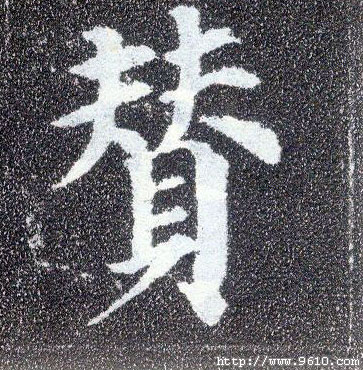 賛
http://www.9610.com